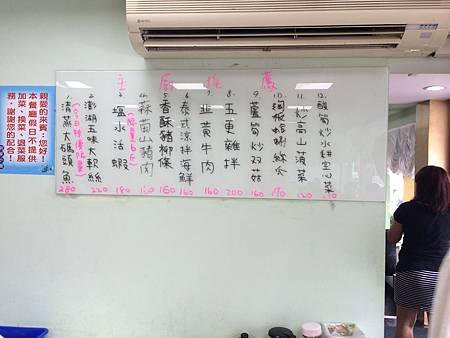 親愛的來賓：您好！
本餐廳假日不提供
加菜、換菜、退菜服
務，謝謝您的配合！
主廚推薦
1. 清蒸大碼頭魚 280
2. 澎湖五味大軟絲 220
3. 塩水活蝦 180
4. 蒜苗山豬肉 160
5. 香酥豬柳條 160
6. 泰式涼拌海鮮 160
7. 韭黃牛肉 160
8. 五更雞拌 200
9. 蘆筍炒双菇 160
10. 鐵板螃蜞綜合 190
11. 炒高山菠菜 120
12. 酸筍炒水耕空心菜